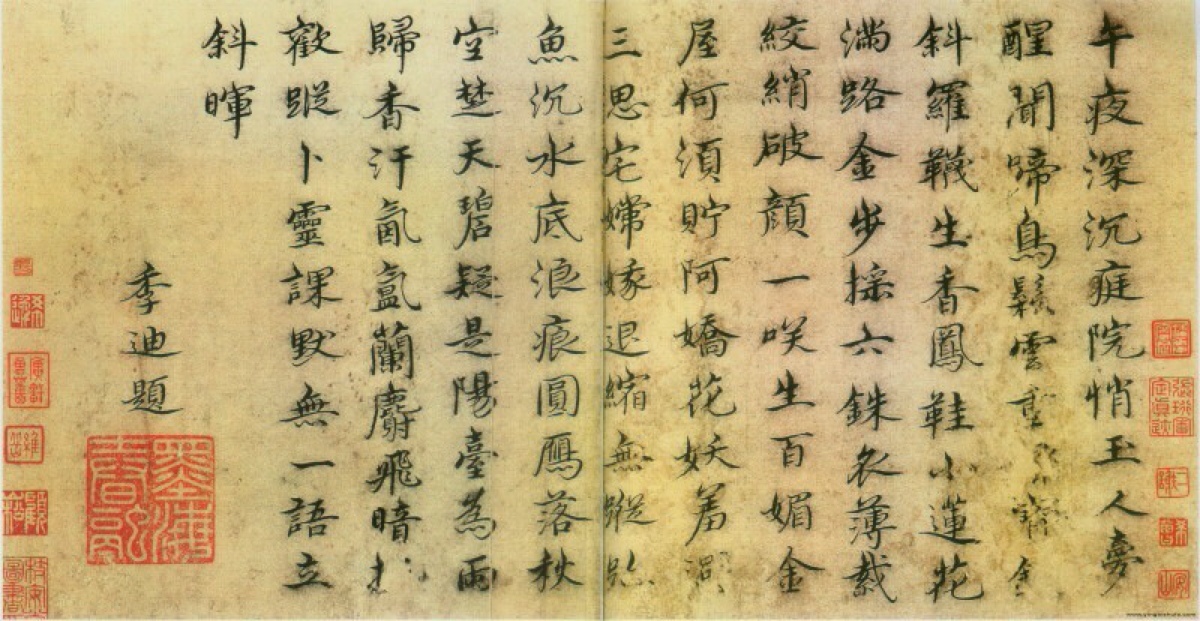 午夜深沉庭院悄玉人夢
醒聞啼鳥鬆雲重 金
斜羅襪生香鳳鞋小蓮花
滿路金步採六銖衣薄裁
絞綃破顏一咲生百媚金
屋何須貯阿嬌花妖羞
三思宅嫦娥退縮無蹤
魚沉水底浪痕圓鴈落秋
空楚天碧疑是陽臺為雨
歸香汗氤氳蘭麝飛暗
歡蹤卜靈課默無一語立
斜暉
季迪題